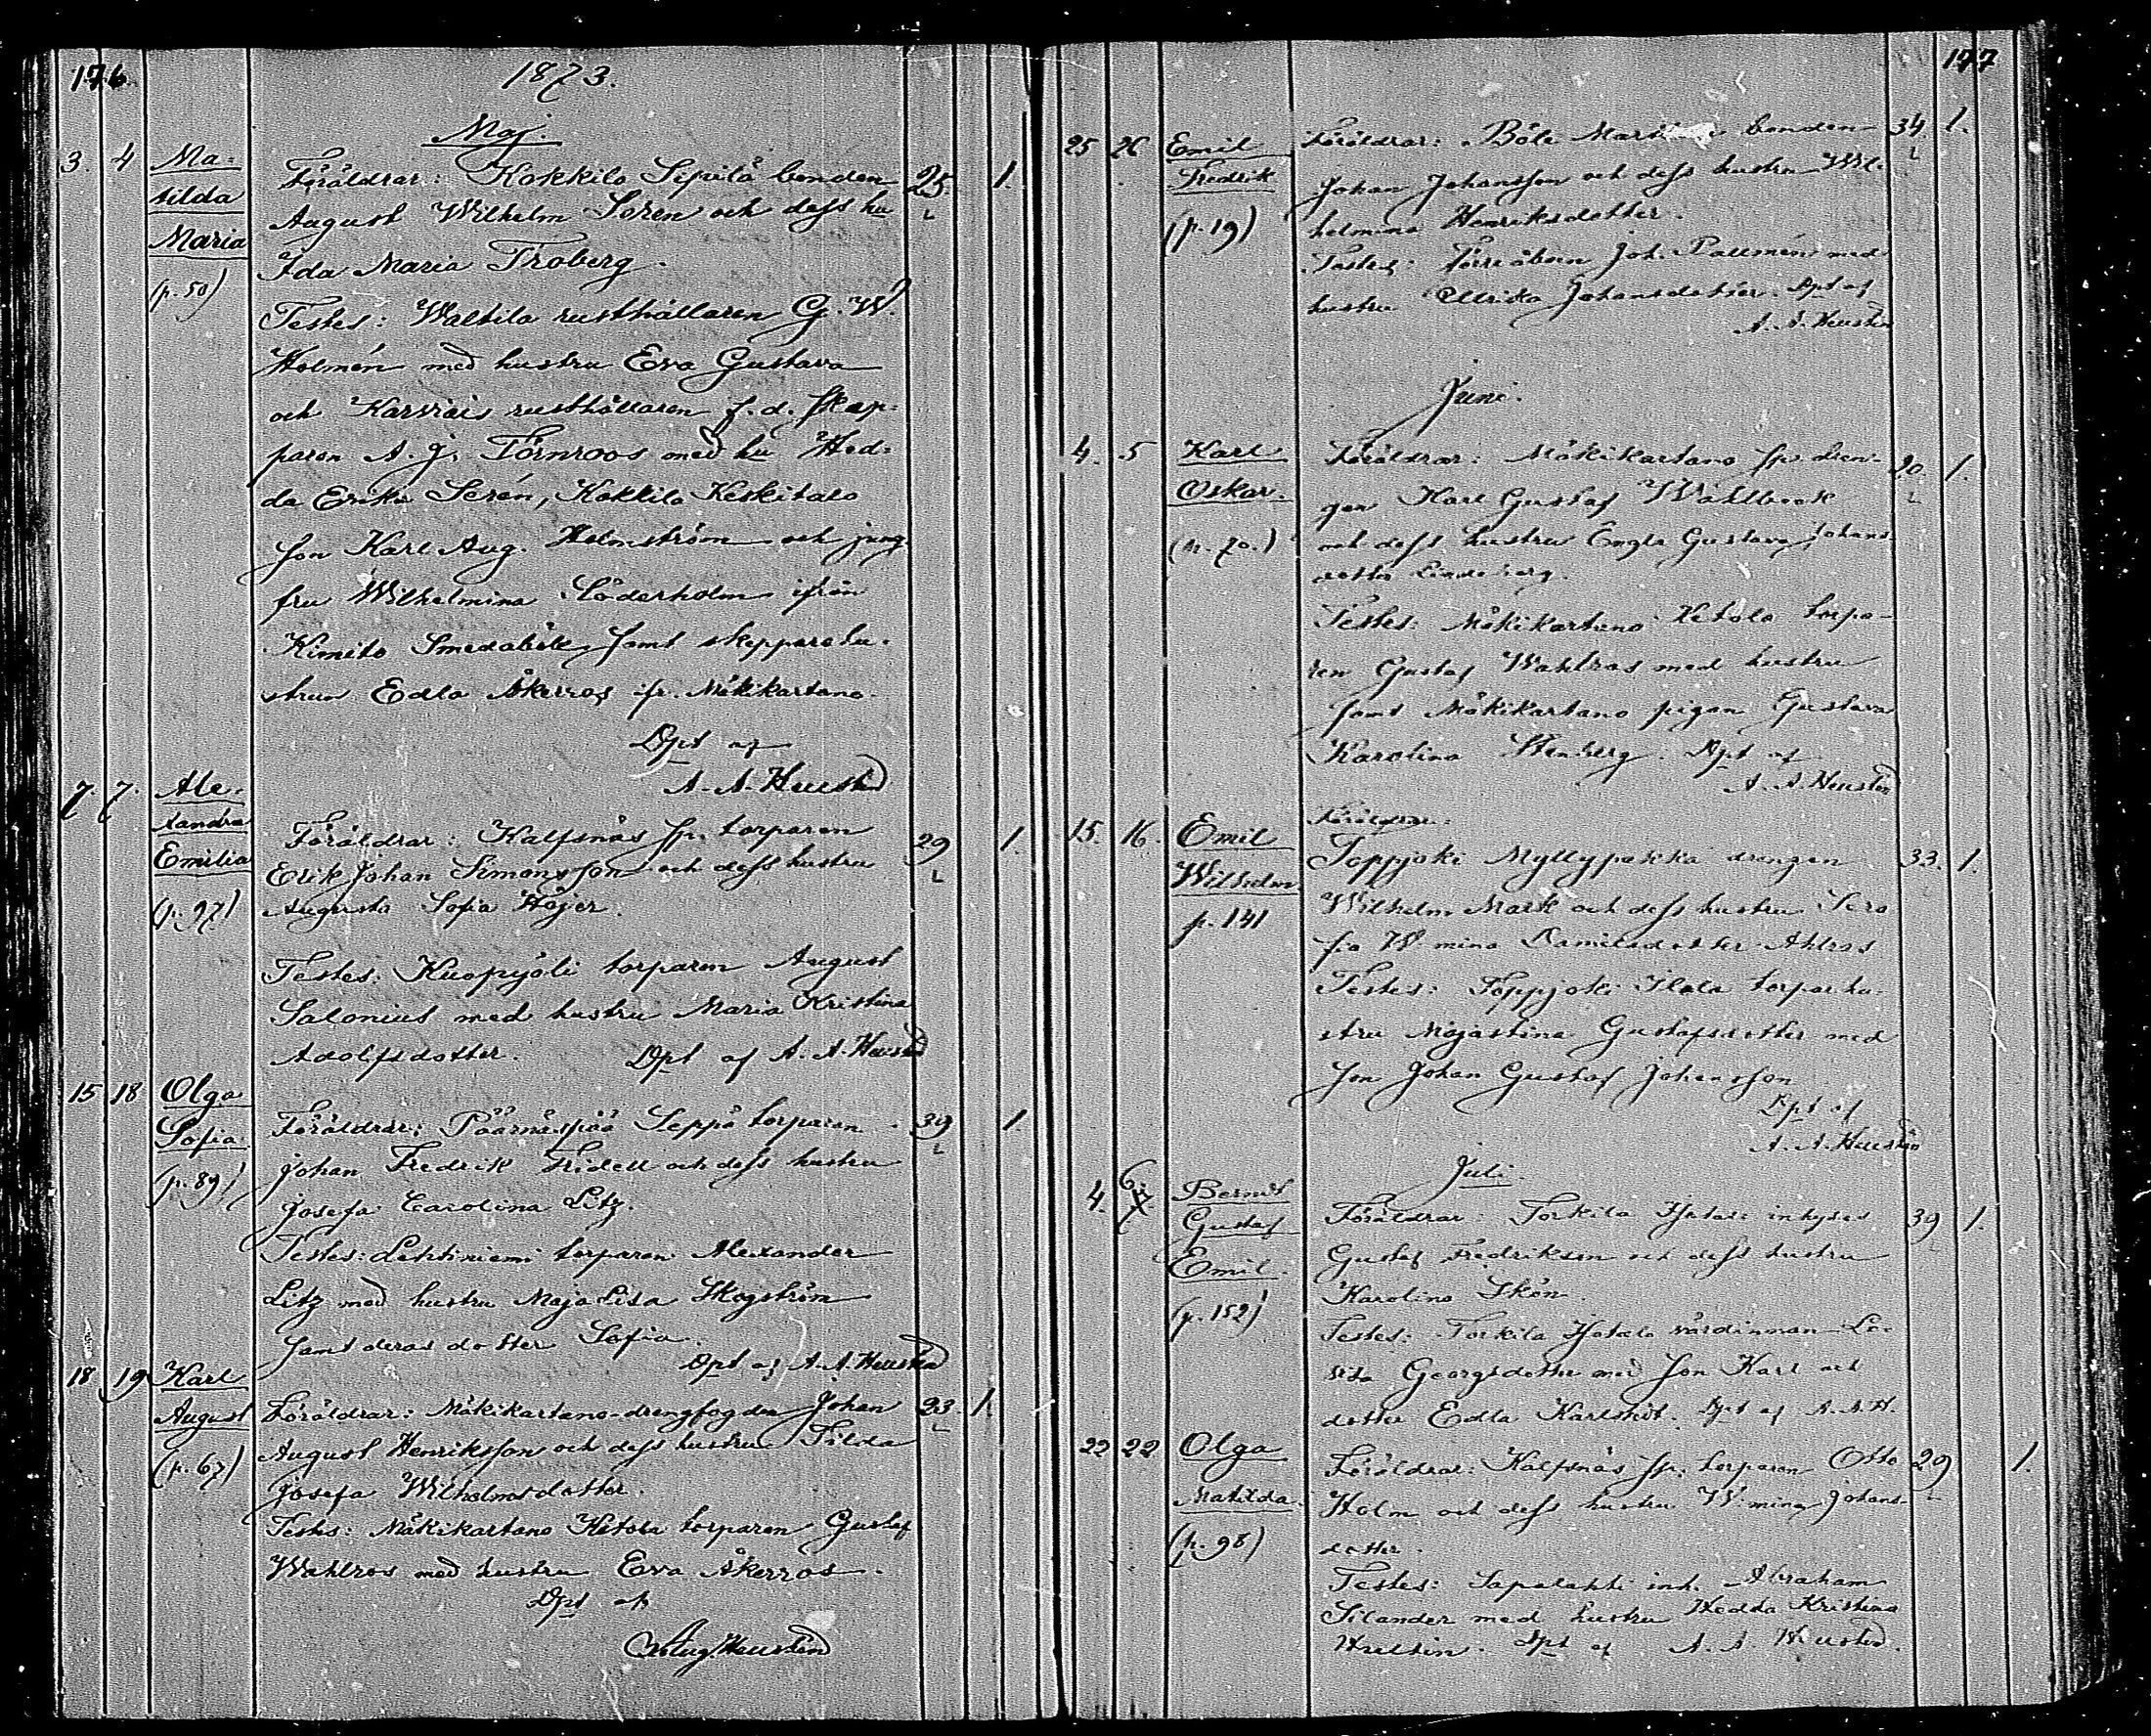 176.
1873.
Maj.
3. 4 Ma-
tilda
Maria
(p. 50)
Föräldrar: Kokkila Sipilä bonden 25 1.
August Wilhelm Seren och dess hu
Ida Maria Froberg.
Testes: Waltila rusthållaren G. W.
Holmén med hustru Eva Gustava
och Karviais rusthållaren f.d. skep-
paren A. J. Törnroos med hu Hed-
da Erika Serén, Kokkila Keskitalo
son Karl Aug. Helmström och jung
fru Wilhelmina Söderholm ifrån
Kimito Smedaböle samt skepparehu-
strun Edla Åkerros ifr. Mäkikartano.
Dpt af
A. A. Heusted
7. 7. Ale-
xandra
Emilia
(p. 97)
Föräldrar: Kalfsnäs sp. torparen 29 1.
Erik Johan Simonsson och dess hustru
Augusta Sofia Höjer.
Testes: Kuopyöli torparen August
Salonius med hustru Maria Kristina
Adolfsdotter. Dpt af A. A. Heusted
15 18 Olga
Sofia
(p. 89)
Föräldrar: Päärnäspää Seppä torparen 39 1.
Johan Fredrik Fridell och dess hustru
Josefa Carolina Litz.
Testes: Lehtiniemi torparen Alexander
Litz med hustru Maja Lisa Skogström
samt deras dotter Sofia.
Dpt af A. A. Heusted
18 19 Karl
August
(p. 67)
Föräldrar: Mäkikartano drengfogden Johan 23. 1.
August Henriksson och dess hustru Tilda
Josefa Wilhelmsdotter.
Testes: Mäkikartano Ketola torparen Gustaf
Wahlros med hustru Eva Åkerros.
Dpt af
Aug. Heusted
177
25 26 Emil
Fredrik
(p. 19)
Föräldrar: Böle bonden 34 1.
Johan Johansson och dess hustru Wil-
helmina Henriksdotter.
Testes: Joh. Pallmén med
hustru Ulrika Johansdotter. Dpt af
A. A. Heusted
Juni.
4. 5 Karl
Oskar.
(p. 70.)
Föräldrar: Mäkikartano sp. dren- 20. 1.
gen Karl Gustaf Wahlbeck
och dess hustru Engla Gustava Johans
dotter Lindeberg.
Testes: Mäkikartano Ketola torpa-
ren Gustaf Wahlros med hustru
samt Mäkikartano pigan Gustava
Karolina Stenberg. Dpt af
A. A. Heusted
15. 16. Emil
Wilhelm
p. 141
Föräldrar:
Toppjoki Myllypakka drengen 33. 1.
Wilhelm Mark och dess hustru Sera
fia W-mina Danielsdotter Ahlros
Testes: Toppjoki Ilola torparehu-
stru Majastina Gustafsdotter med
son Johan Gustaf Johansson
Dpt af
A. A. Heusted
Juli.
4. 6 Berndt
Gustaf
Emil.
(p. 152)
Föräldrar: Torkila inhyses 39 1.
Gustaf Fredrikson och dess hustru
Karolina Skön.
Testes: Torkila värdinnan Lo-
visa Georgsdotter med son Karl och
dotter Edla Karlsdot. Dpt af A. A. H.
22 22 Olga
Matilda.
(p. 98)
Föräldrar: Kalfsnäs sp. torparen Otto 29 1.
Holm och dess hustru W-mina Johans-
dotter.
Testes: Sapalahti inh. Abraham
Silander med hustru Hedda Kristina
Hultin. Dpt af A. A. Heusted.